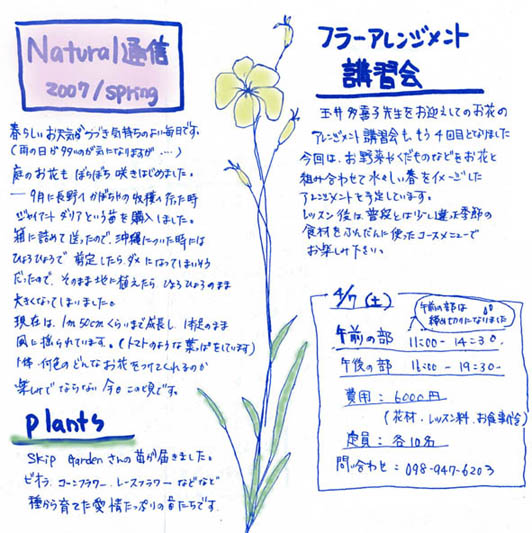 Natural通信
2007/spring
春らしいお天気がつづき気持ちのよい毎日です。
(雨の日が多いのが気になりますが…)
庭のお花もぼちぼち咲きはじめました。
9月に長野へかぼちゃの収穫へ行った時
ジャイアントダリアという苗を購入しました。
箱に詰めて送ったので、沖縄についた時には
ひょろひょろで剪定したらダメになってしまいそう
だったので、そのまま地に植えたらひょろひょろのまま
大きくなってしまいました。
現在は、1m50cmくらいまで成長し、1本足のまま
風に揺られています。(トマトのような葉っぱをしています)
1体何色のどんなお花をつけてくれるのか
楽しみでならない今日この頃です。
plants
Skip Gardenさんの苗が届きました。
ビオラ、コーンフラワー、レースフラワーなどなど
種から育てた愛情たっぷりの苗たちです。
フラワーアレンジメント
講習会
玉井多喜子先生をお迎えしてのお花の
アレンジメント講習会も、もう4回目となりました
今回は、お野菜やくだものなどをお花と
組み合わせて水々しい春をイメージした
アレンジメントを予定しています。
レッスン後は普段とは少し違う季節の
食材をふんだんに使ったコースメニューで
お楽しみ下さい。
4/7(土)
午前の部は
締め切りになりました
午前の部 11:00-14:30
午後の部 16:00-19:30
費用:6000円
(花材、レッスン料、お食事代含)
定員:各10名
問い合わせ:098-947-6203